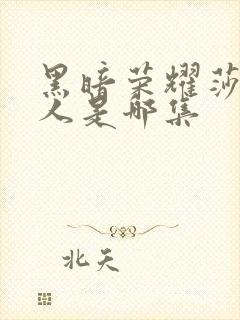 黑暗荣耀莎
人是哪集
北天